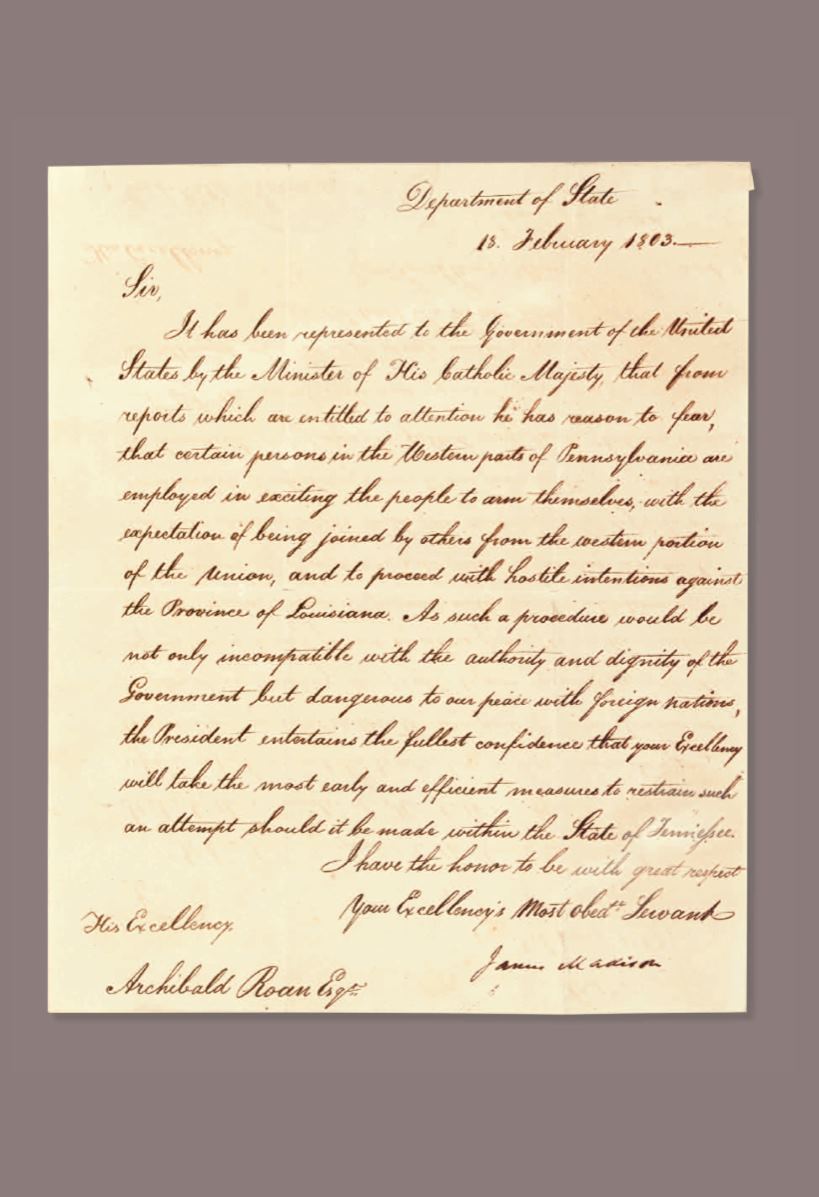 Department of State
18. February 1803.
Sir,
It has been represented to the Government of the United
States by the Minister of His Catholic Majesty, that from
reports which are entitled to attention he has reason to fear,
that certain persons in the Western parts of Pennsylvania are
employed in exciting the people to arm themselves, with the
expectation of being joined by others from the western portion
of the Union, and to proceed with hostile intentions against
the Province of Louisiana. As such a procedure would be
not only incompatible with the authority and dignity of the
Government but dangerous to our peace with foreign nations,
the President entertains the fullest confidence that your Excellency
will take the most early and efficient measures to restrain such
an attempt should it be made within the State of Tennessee.
I have the honor to be with great respect
Your Excellency's Most obedt Servant
His Excellency
James Madison
Archibald Roan Esqr.